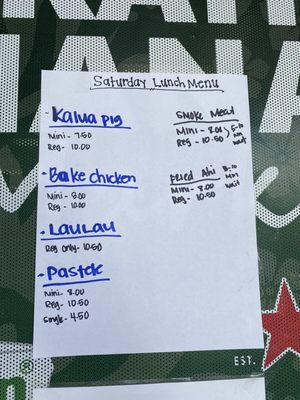 Saturday Lunch Menu
Kalua pig
Mini - 7.50
Reg - 10.00
- Bake chicken
Mini - 8.00
Reg - 10.00
- Laulau
Reg only - 10.50
- Pastele
Mini - 8.00
Reg - 10.50
Single - 4.50
Smoke Meat
Mini - 8.00
Reg - 10.50
5-10 min wait
Fried Ahi
Mini - 8.00
Reg - 10.50
8-10
Min
wait
EST.